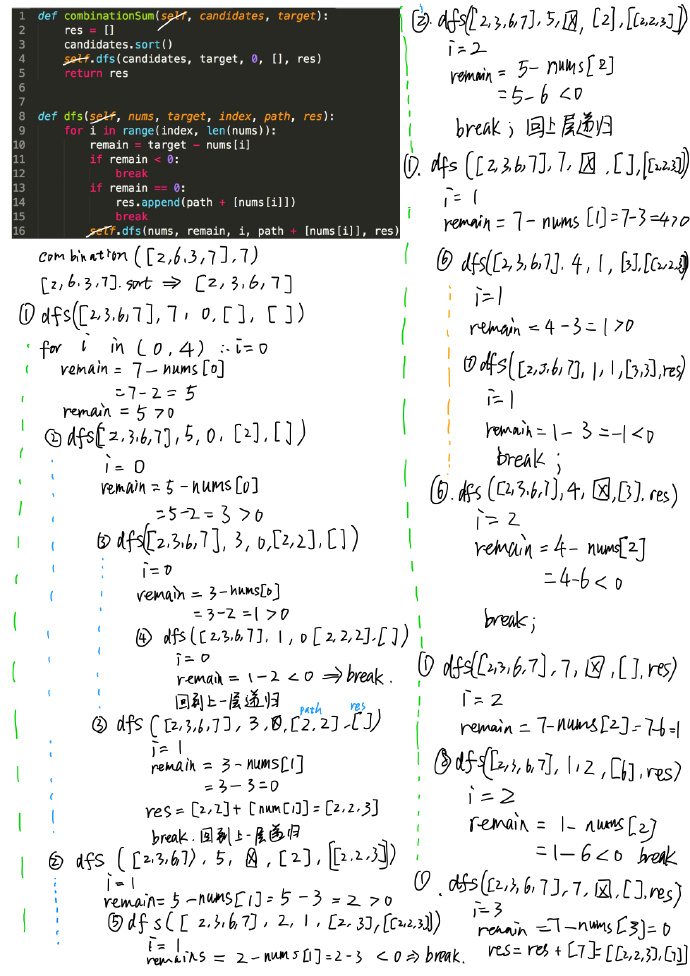 1 def combinationSum(self, candidates, target):
2 res = []
3 candidates.sort()
4 self.dfs(candidates, target, 0, [], res)
5 return res
6
7
8 def dfs(self, nums, target, index, path, res):
9 for i in range(index, len(nums)):
10 remain = target - nums[i]
11 if remain < 0:
12 break
13 if remain == 0:
14 res.append(path + [nums[i]])
15 break
16 self.dfs(nums, remain, i, path + [nums[i]], res)
combination([2,6,3,7],7)
[2,6,3,7].sort ⇒ [2,3,6,7]
① dfs([2,3,6,7],7,0,[],[])
for i in (0,4) ∴i=0
remain = 7-nums[0]
=7-2=5
remain=5>0
② dfs([2,3,6,7],5,0,[2],[])
i=0
remain=5-nums[0]
=5-2=3>0
③ dfs([2,3,6,7],3,0,[2,2],[])
i=0
remain=3-nums[0]
=3-2=1>0
④ dfs([2,3,6,7],1,0[2,2,2],[])
i=0
remain=1-2<0 ⇒break.
回到上一层递归
path res
③ dfs([2,3,6,7],3,☒,[2,2],[])
i=1
remain=3-nums[1]
=3-3=0
res=[2,2]+[num[1]]=[2,2,3]
break.回到上一层递归
② dfs([2,3,6,7),5,☒,[2],[[2,2,3])
i=1
remain=5-nums[1]=5-3=2>0
⑤dfs([2,3,6,7],2,1,[2,3],[[2,2,3]])
i=1
remains=2-nums[1]=2-3<0⇒break.
②. dfs([2,3,6,7],5,☒,[2],[[2,2,3]])
i=2
remain=5-nums[2]
=5-6<0
break; 回上层递归
①. dfs([2,3,6,7],7,☒,[],[[2,2,3])
i=1
remain=7-nums[1]=7-3=4>0
⑥ dfs([2,3,6,7].4,1,[3],[2,2,3])
i=1
remain=4-3=1>0
⑦dfs([2,3,6,7],1,1,[3,3],res)
i=1
remain=1-3=-1<0
break;
⑥. dfs([2,3,6,7],4,☒,[3].res)
i=2
remain=4-nums[2]
=4-6<0
break;
① dfs([2,3,6,7],7,☒,[],res)
i=2
remain=7-nums[2]=7-6=1
⑧dfs([2,3,6,7],1,2,[6],res)
i=2
remain=1-nums[2]
=1-6<0 break
①. dfs([2,3,6,7],7,☒,[],res)
i=3
remain=7-nums[3]=0
res=res+[7]=[[2,2,3],[7]]